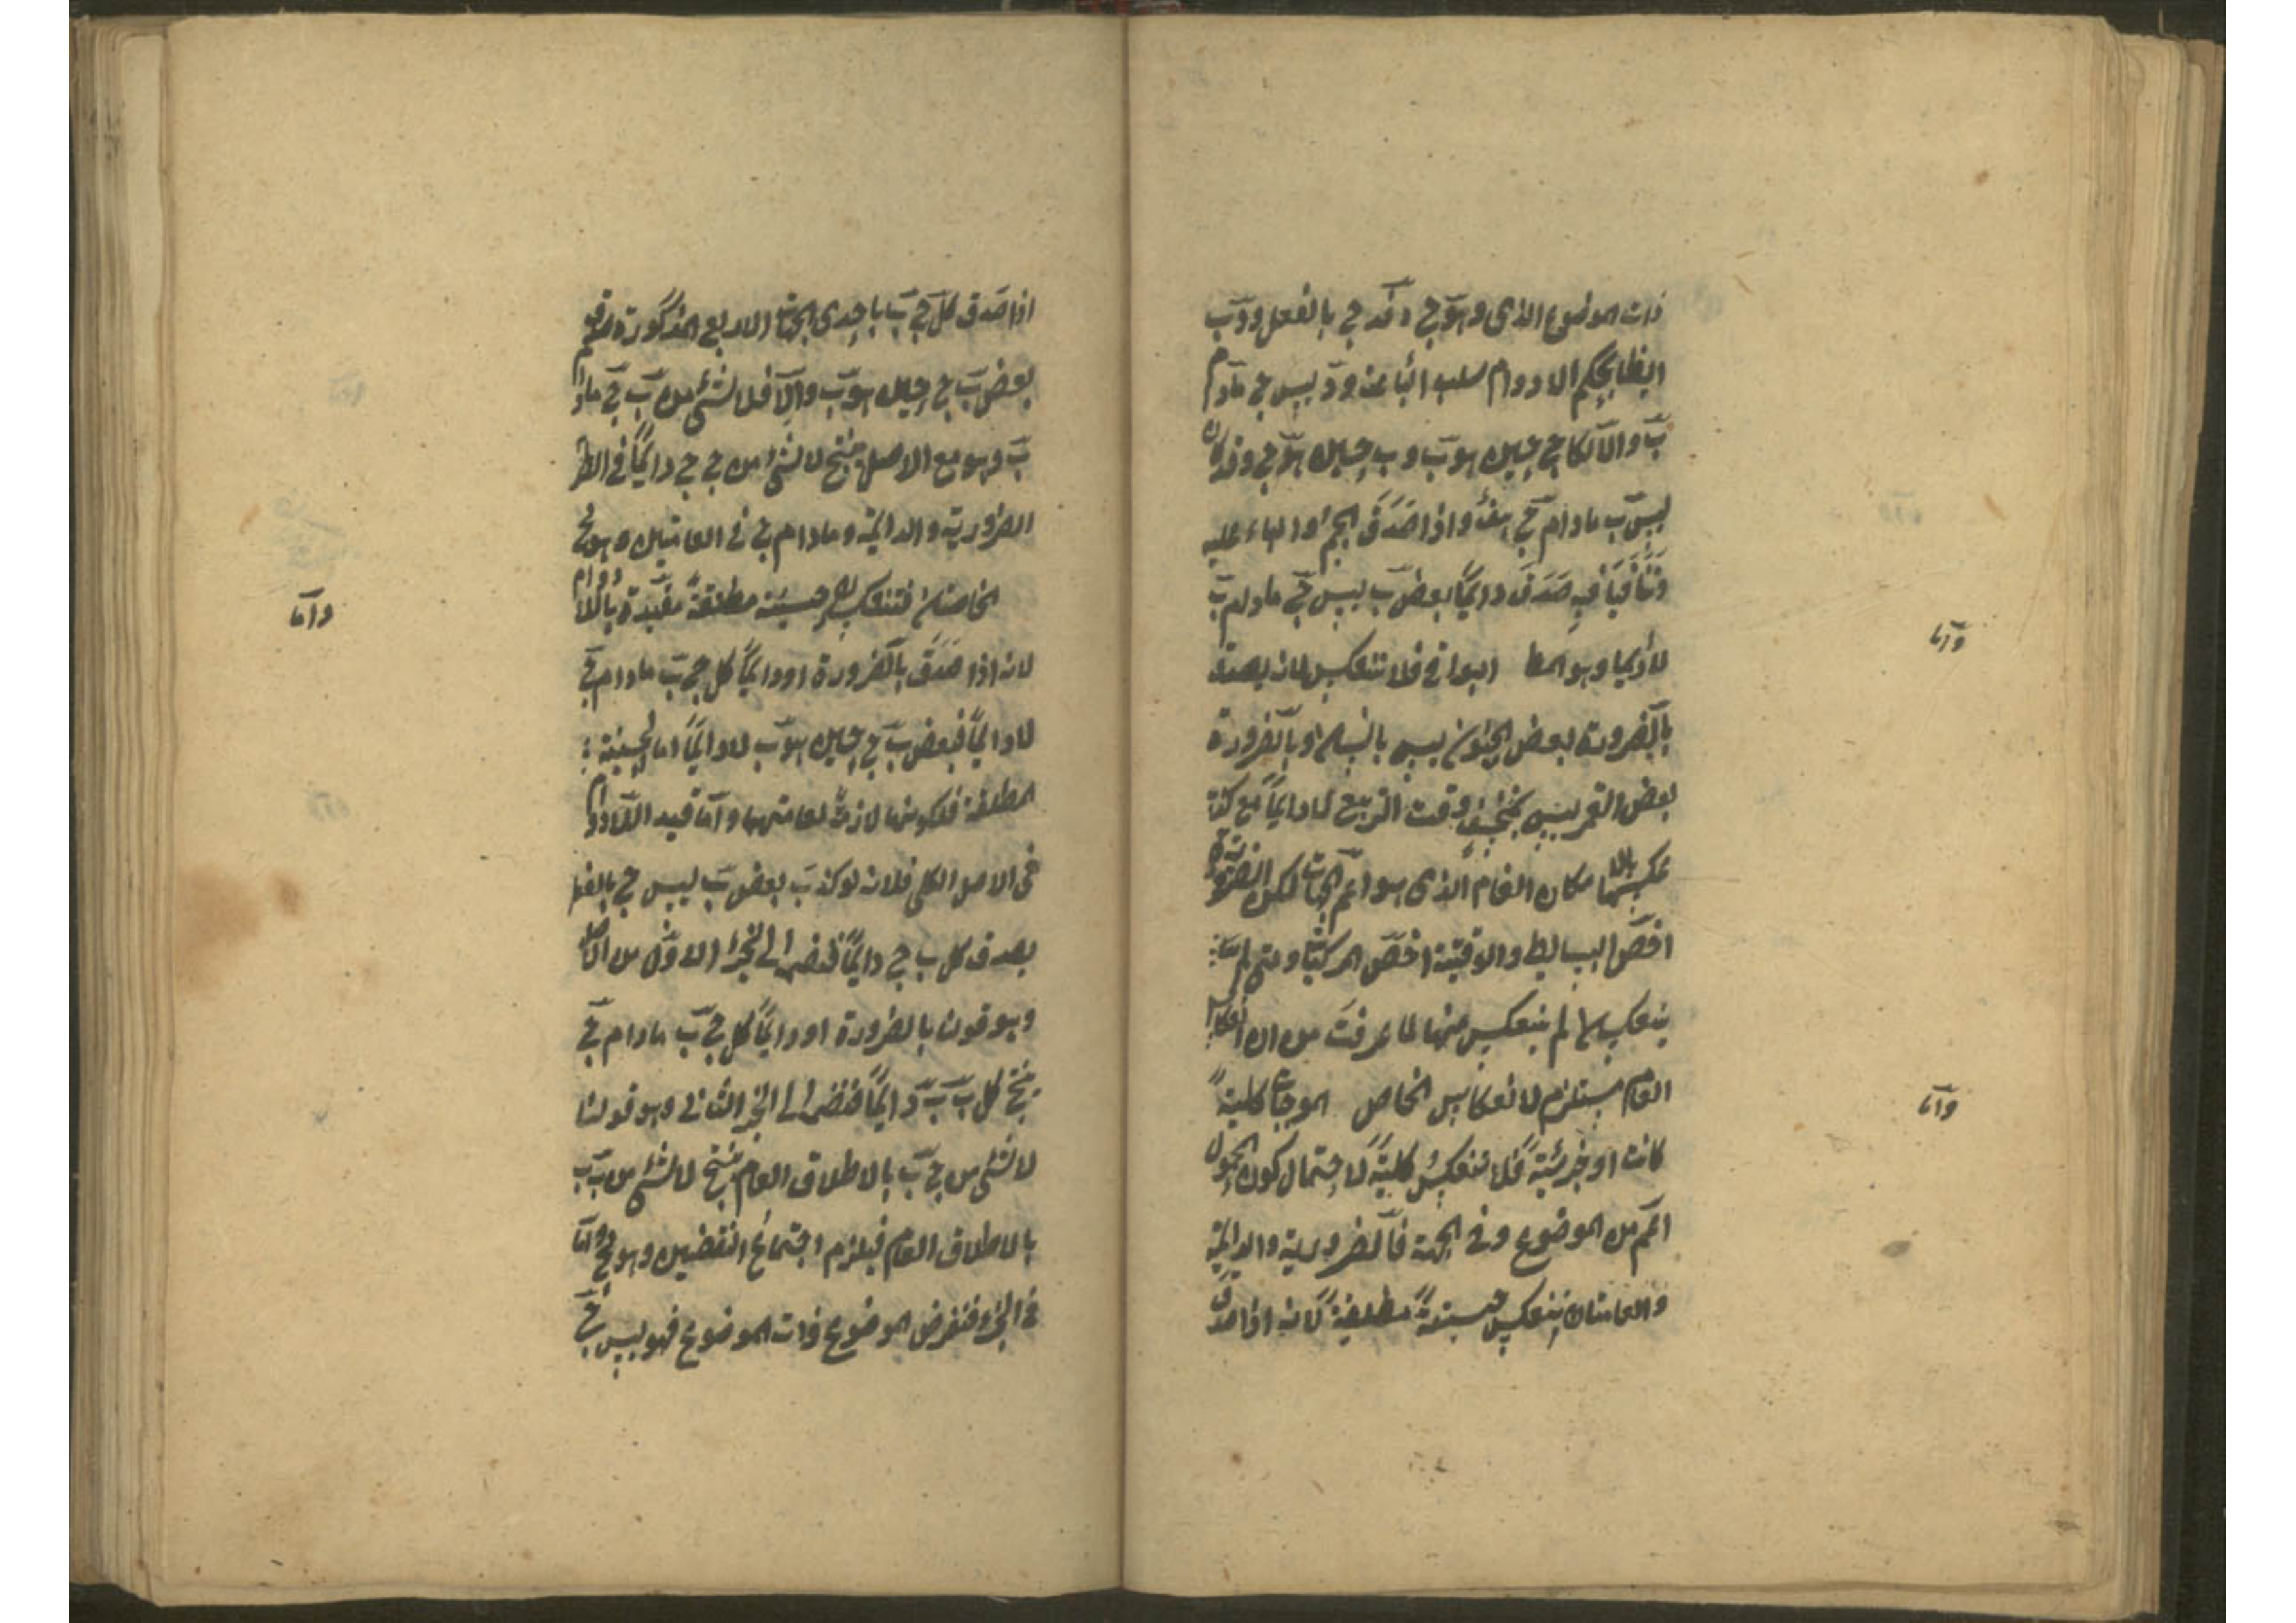 ذات الموضوع الذى وهو ج د فد ج بالفعل ود ب
ايضا بحكم اللادوام سلب الباء عنه ود ليس ج مادام
ب والا لكان ج حين هو ب وب حين هو ج وقد كان
ليس ب مادام ج هف واذا صدق الجيم والباء عليه
وتنافيا فيه صدق دائما بعض ب ليس ج مادام ب
لا دائما وهو المط البواقى فلا تنعكس لانه يصدق
واما
بالضرورة بعض الحيوان ليس بانسان وبالضرورة
بعض القمر ليس بمنخسف وقت التربيع لا دائما مع كذب
عكسهما بالامكان العام الذى هو اعم الجهات لكن الضرورية
اخص البسايط والوقتية اخص المركبات ومتى لم
ينعكسا لم ينعكس شئ منها لما عرفت من ان انعكاس
العام مستلزم لانعكاس الخاص الموجبات كلية
واما
كانت او جزئية فلا تنعكس كلية لاحتمال كون المحمول
اعم من الموضوع وفى الجهة فالضرورية والدائمة
والعامتان تنعكس حينية مطلقة لانه اذا صدق
اذا صدق كل ج ب باحدى الجهات الاربع المذكورة صدق
بعض ب ج حين هو ب والا فلا شئ من ب ج مادام
ب وهو مع الاصل ينتج لا شئ من ج ج دائما فى
الضرورية والدائمة ومادام ج فى العامتين وهو مح
الخاصتان فتنعكس حينية مطلقة مقيدة باللادوام
واما
لانه اذا صدق بالضرورة او دائما كل ج ب مادام ج
لا دائما فبعض ب ج حين هو ب لا دائما اما الحينية
المطلقة فلكونها لازمة لعامتهما واما قيد اللادوام
فى الاصل الكلى فلانه لو كذب بعض ب ليس ج بالفعل
يصدق كل ب ج دائما فنضمه الى الجزء الاول من الاصل
وهو قولنا بالضرورة او دائما كل ج ب مادام ج
ينتج كل ب ب دائما فنضمه الى الجزء الثانى وهو قولنا
لا شئ من ج ب بالاطلاق العام ينتج لا شئ من ب ب
بالاطلاق العام فيلزم اجتماع النقيضين وهو مح واما
فى الجزئى فنفرض الموضوع ذات الموضوع فهو ليس ج